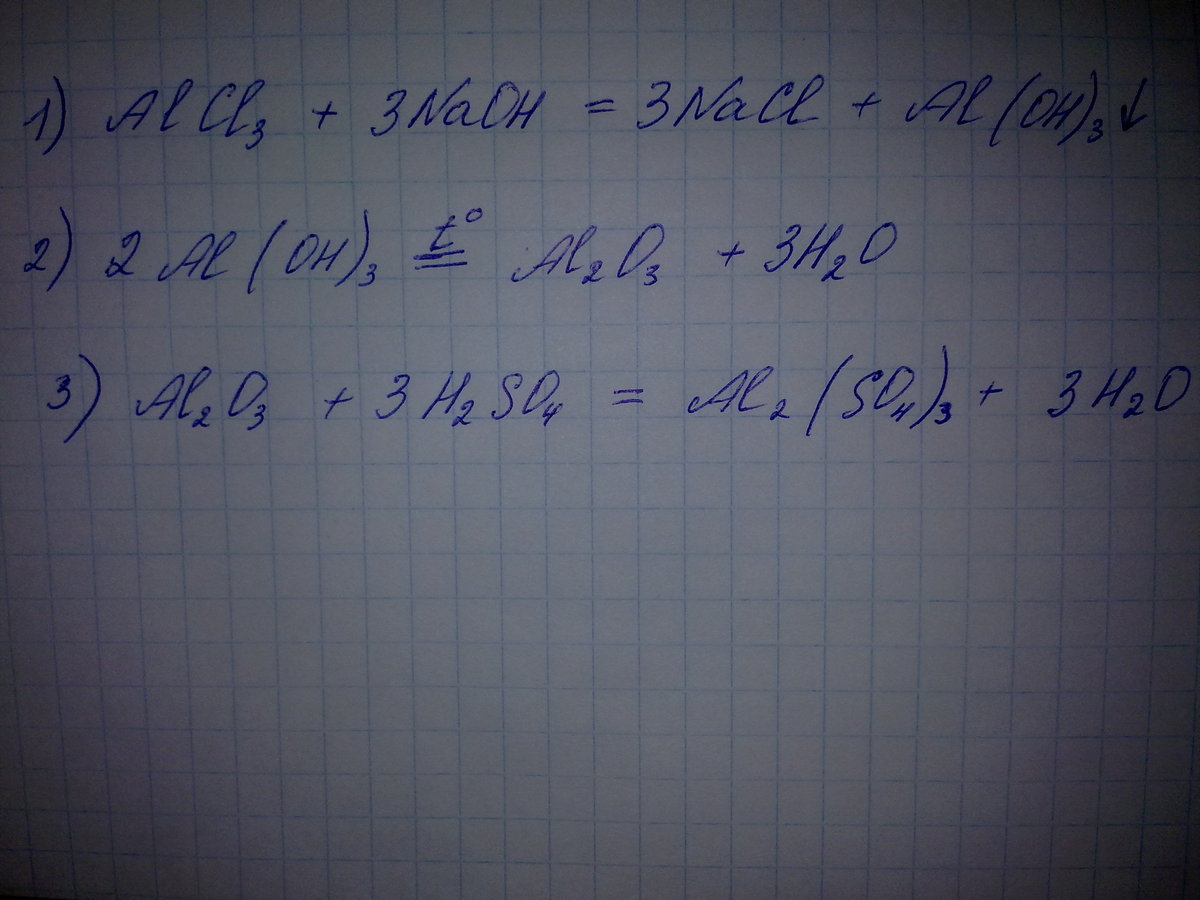 1) AlCl₃ + 3NaOH = 3NaCl + Al(OH)₃↓
2) 2Al(OH)₃ =t°= Al₂O₃ + 3H₂O
3) Al₂O₃ + 3H₂SO₄ = Al₂(SO₄)₃ + 3H₂O